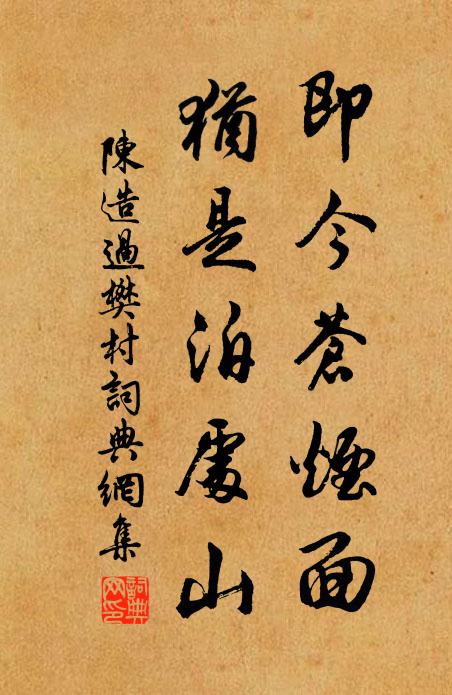 即今蒼煙面
猶是泊處山
陳造過樊村詞典網集
詞典网印